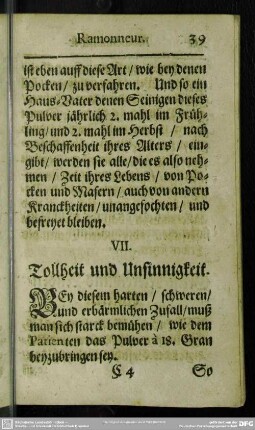 Ramonneur. 39
ist eben auff diese Art / wie bey denen
Pocken / zu verfahren. Und so ein
Haus-Vater denen Seinigen dieses
Pulver jährlich 2. mahl im Früh-
ling / und 2. mahl im Herbst / nach
Beschaffenheit ihres Alters / ein-
gibt / werden sie alle / die es also neh-
men / Zeit ihres Lebens / von Po-
cken und Masern / auch von andern
Kranckheiten / unangefochten / und
befreyet bleiben.
VII.
Tollheit und Unsinnigkeit.
BEy diesem harten / schweren /
und erbärmlichen Zufall / muß
man sich starck bemühen / wie dem
Patienten das Pulver à 18. Gran
beyzubringen sey.
C 4 So